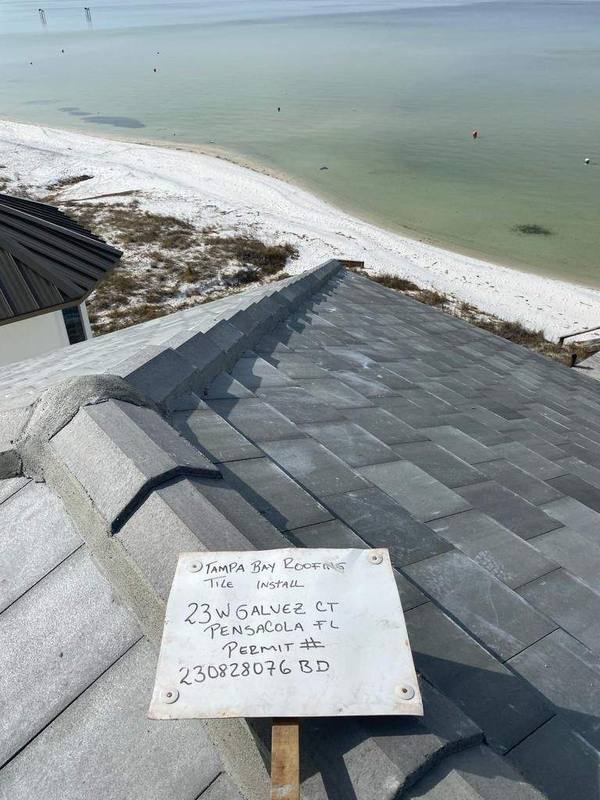 TAMPA BAY ROOFING
TILE INSTALL
23 W GALVEZ CT
PENSACOLA FL
PERMIT #
230828076 BD